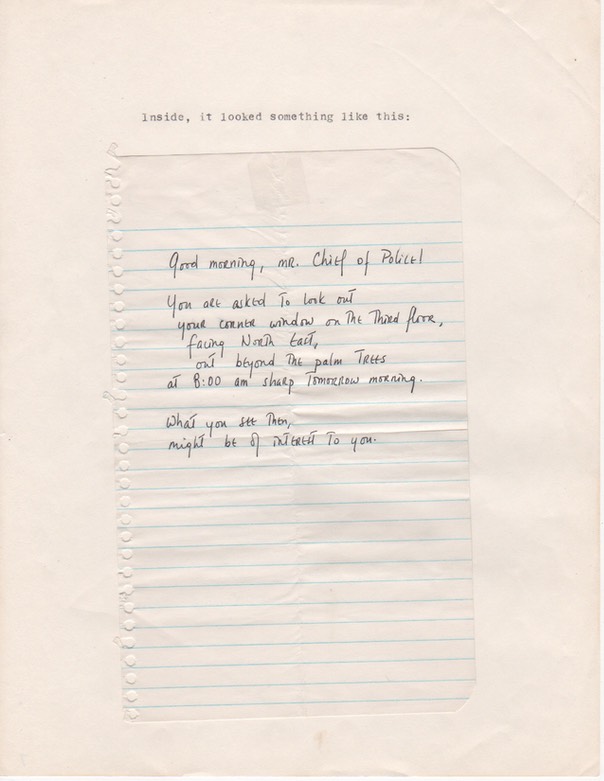 Inside, it looked something like this:
Good morning, mr. Chief of Police!
You are asked to look out
your corner window on the Third floor,
facing North East,
out beyond the palm Trees
at 8:00 am sharp Tomorrow morning.
What you see then,
might be of interest to you.